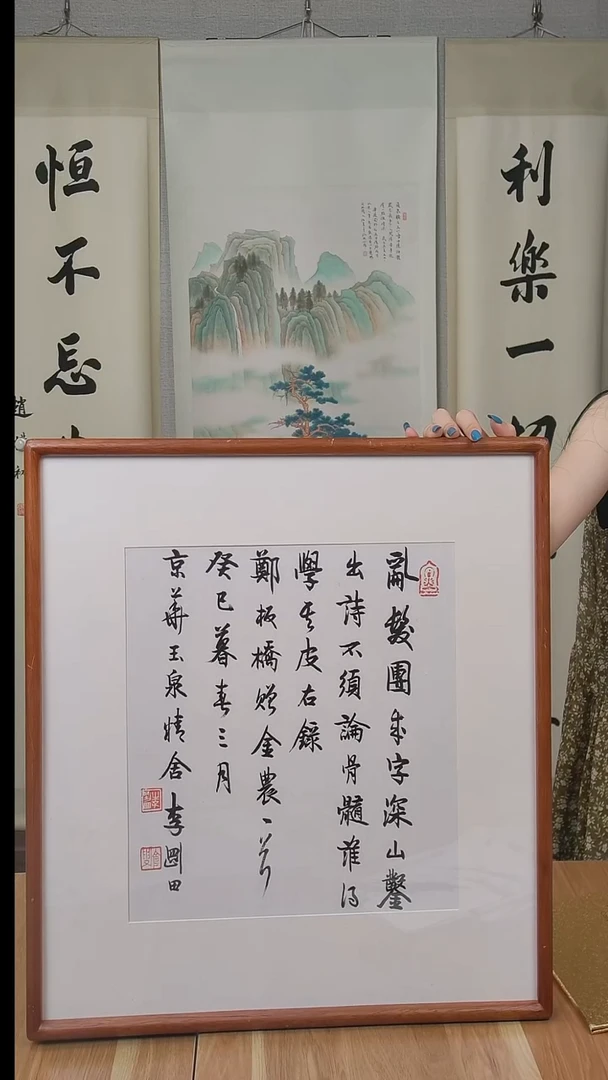 利樂一切
恒不忘
趙樸初
亂髮團成字深山鑿
出詩不須論骨髓誰得
學其皮右錄
鄭板橋贈金農一首
癸巳暮春三月
京華玉泉精舍李剛田